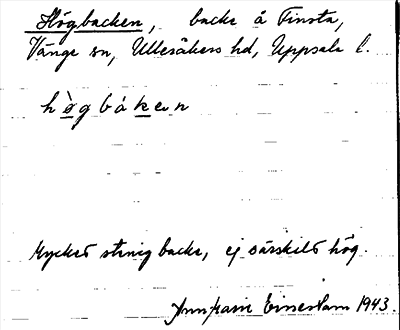 Högbacken, backe å Finsta,
Vänge sn, Ulleråkers hd, Uppsala l.
hògbáken
Mycket stenig backe, ej särskilt hög.
1943.